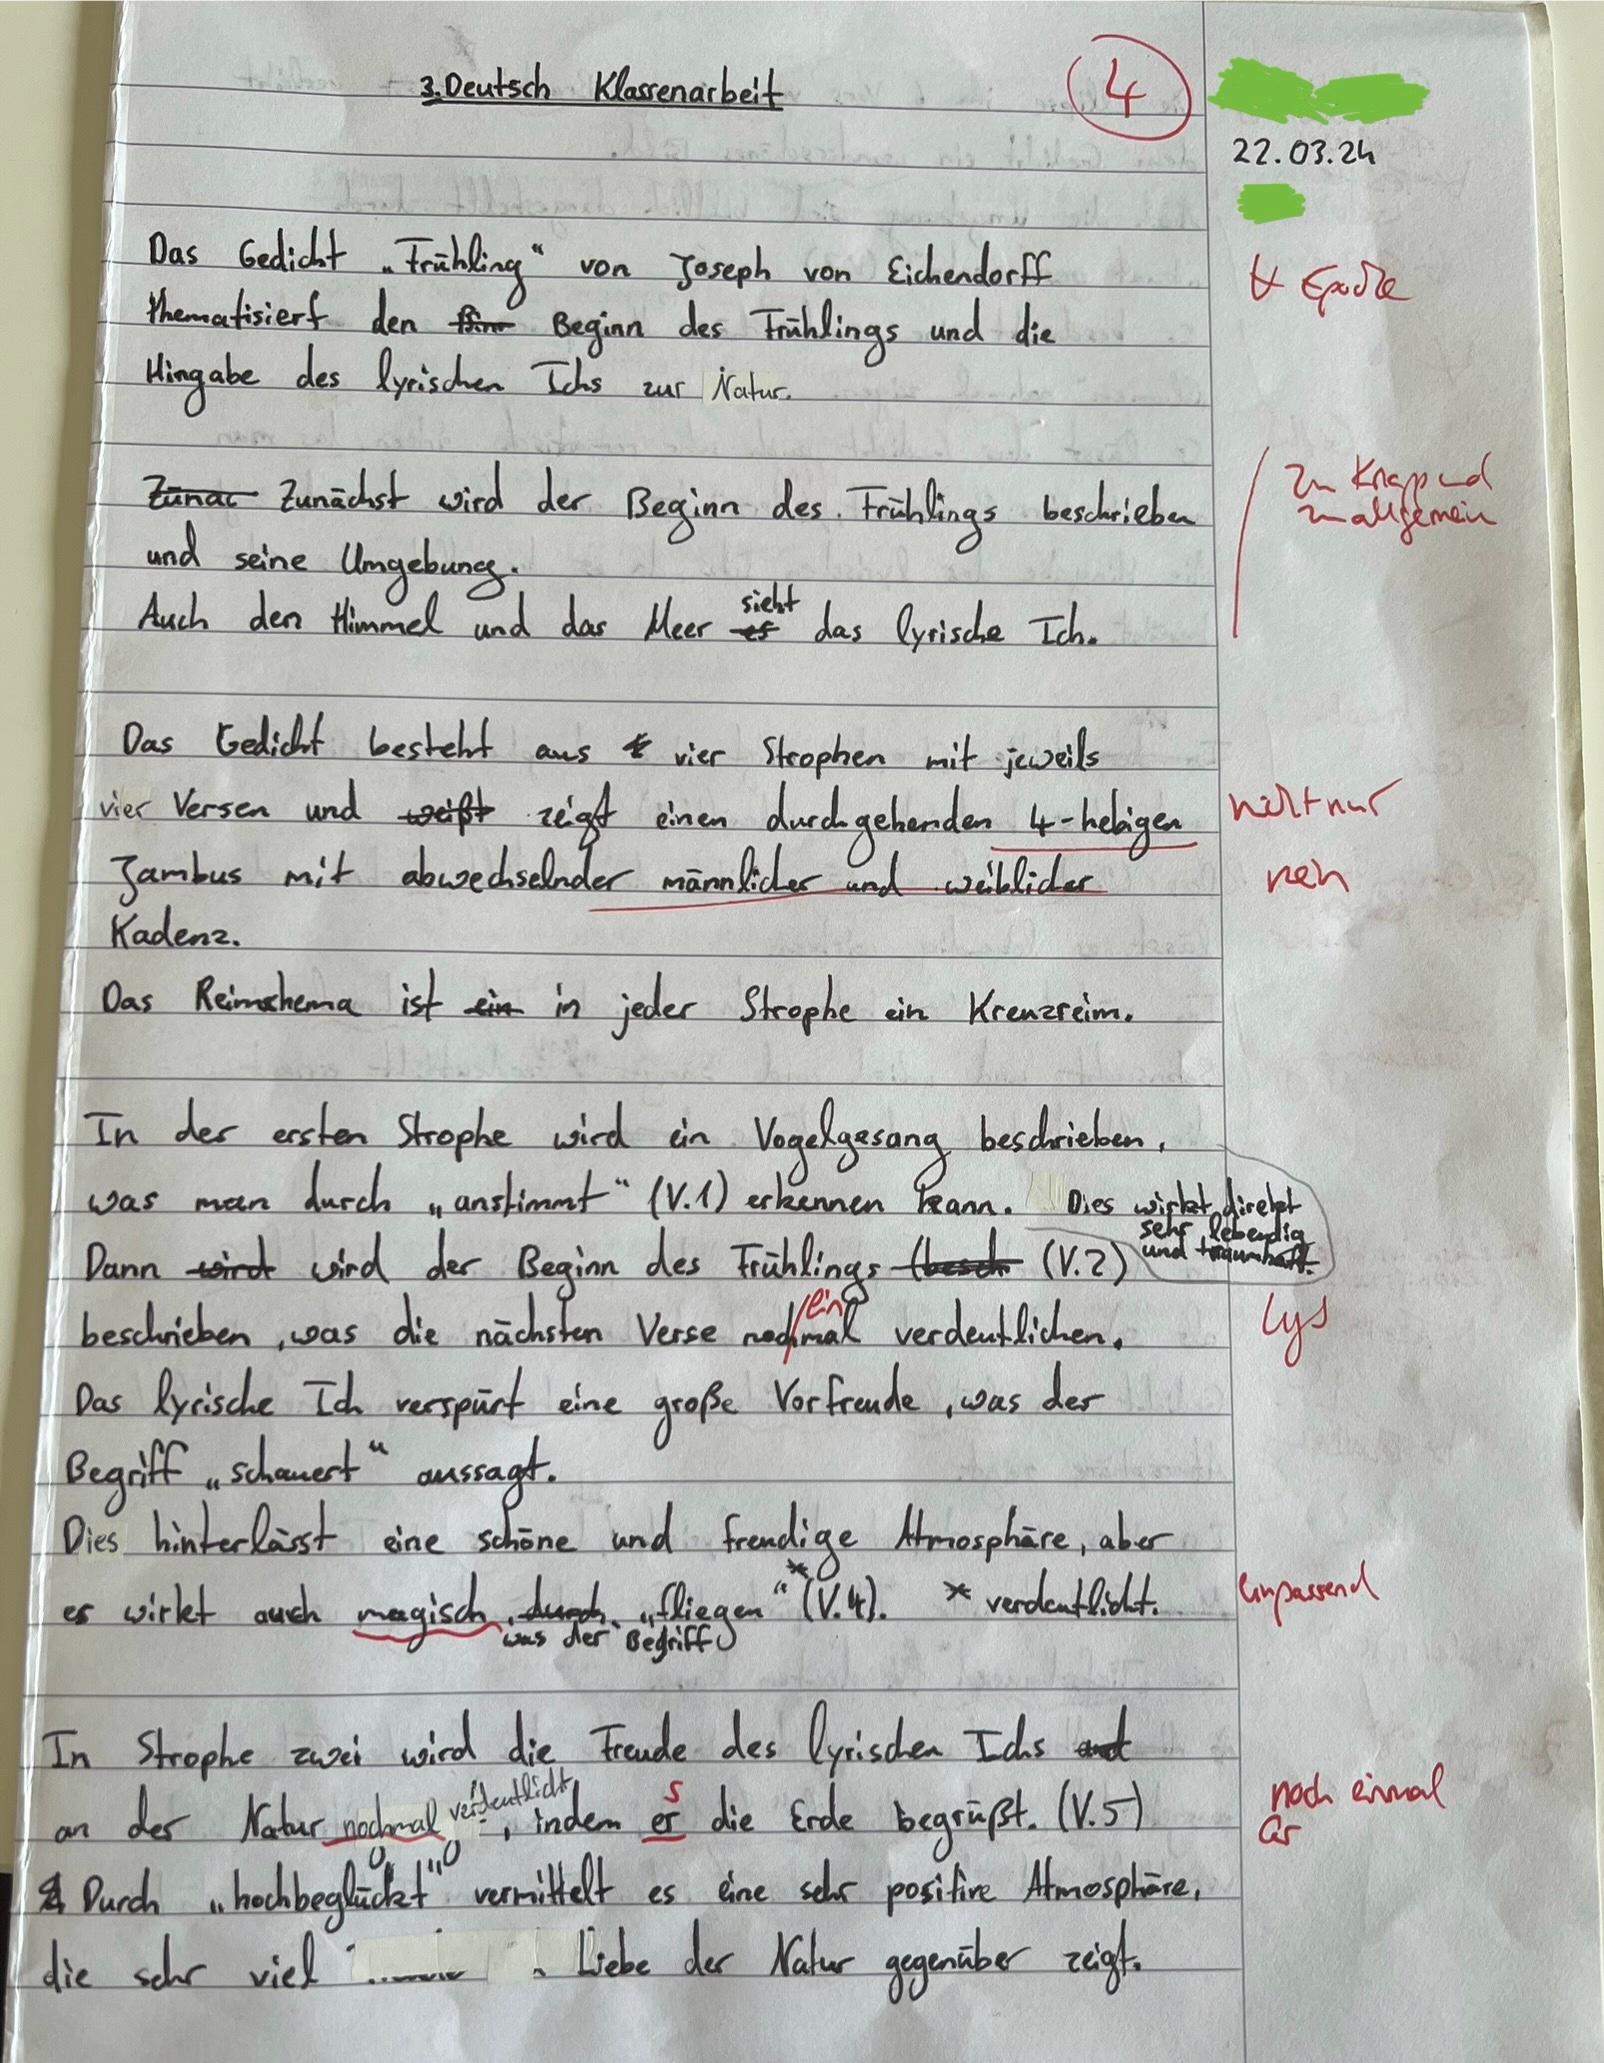 3. Deutsch Klassenarbeit
4
22.03.24
Das Gedicht „Frühling“ von Joseph von Eichendorff
Epoche
thematisiert den Beginn des Frühlings und die
Hingabe des lyrischen Ichs zur Natur.
Zunäc Zunächst wird der Beginn des Frühlings beschrieben
zu knapp und
zu allgemein
und seine Umgebung.
Auch den Himmel und das Meer es sieht das lyrische Ich.
Das Gedicht besteht aus vier Strophen mit jeweils
vier Versen und weißt zeigt einen durchgehenden 4-hebigen
nicht nur
Jambus mit abwechselnder männlicher und weiblicher
nein
Kadenz.
Das Reimschema ist ein in jeder Strophe ein Kreuzreim.
In der ersten Strophe wird ein Vogelgesang beschrieben,
was man durch „anstimmt“ (V.1) erkennen kann. Dies wirkt direkt
sehr lebendig
und traumhaft.
Dann wird wird der Beginn des Frühlings (besch (V.2)
beschrieben, was die nächsten Verse nochmal verdeutlichen.
ein
Das lyrische Ich verspürt eine große Vorfreude, was der
Begriff „schauert“ aussagt.
Dies hinterlässt eine schöne und freudige Atmosphäre, aber
es wirkt auch magisch, durch „fliegen“* (V.4). * verdeutlicht.
was der Begriff
unpassend
In Strophe zwei wird die Freude des lyrischen Ichs und
an der Natur nochmal verdeutlicht, indem er die Erde begrüßt. (V.5)
s
noch einmal
Gr
Durch „hochbeglückt“ vermittelt es eine sehr positive Atmosphäre,
die sehr viel Liebe der Natur gegenüber zeigt.